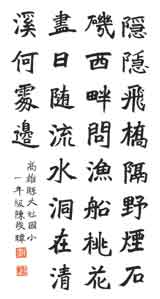 隱隱飛橋隔野煙石
磯西畔問漁船桃花
盡日随流水洞在清
溪何處邊
高雄縣大社國小
一年級陳俊暐